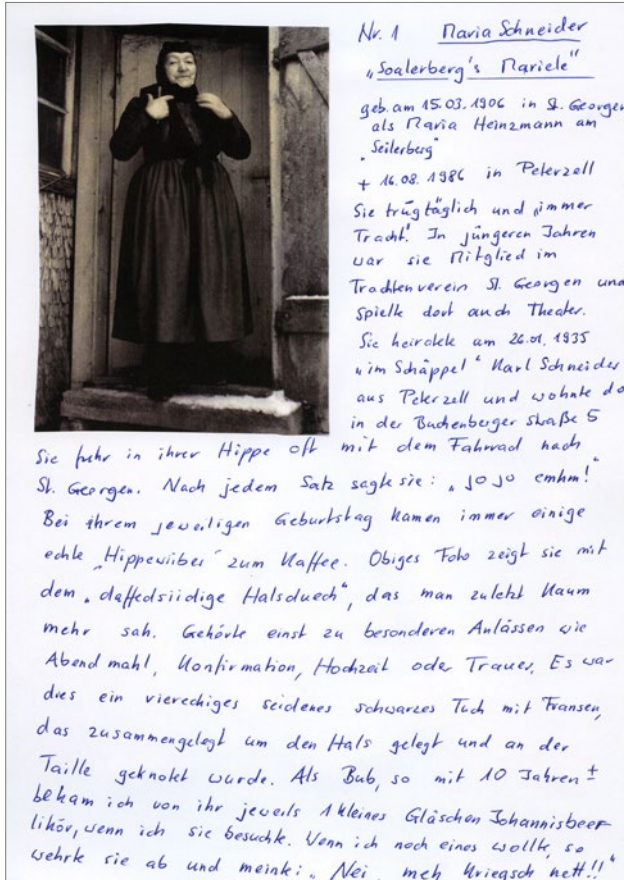 Nr. 1 Maria Schneider
„Soalerberg's Mariele"
geb. am 15.03.1906 in St. Georgen
als Maria Heinzmann am
„Seilerberg"
+ 16.08.1986 in Peterzell
Sie trug täglich und „immer
Tracht". In jüngeren Jahren
war sie Mitglied im
Trachtenverein St. Georgen und
spielte dort auch Theater.
Sie heiratete am 26.01.1935
„im Schäppel" Karl Schneider
aus Peterzell und wohnte do
in der Buchenberger Straße 5
Sie fuhr in ihrer Hippe oft mit dem Fahrrad nach
St. Georgen. Nach jedem Satz sagte sie: „jo jo emhm!"
Bei ihrem jeweiligen Geburtstag kamen immer einige
echte „Hippewiiber" zum Kaffee. Obiges Foto zeigt sie mit
dem „daffedsiidige Halsduech", das man zuletzt kaum
mehr sah. Gehörte einst zu besonderen Anlässen wie
Abendmahl, Konfirmation, Hochzeit oder Trauer. Es war
dies ein viereckiges seidenes schwarzes Tuch mit Fransen,
das zusammengelegt um den Hals gelegt und an der
Taille geknotet wurde. Als Bub, so mit 10 Jahren ±
bekam ich von ihr jeweils 1 kleines Gläschen Johannisbeer
likör, wenn ich sie besuchte. Wenn ich noch eines wollte, so
wehrte sie ab und meinte: „Nei, meh kriegsch nett!!"